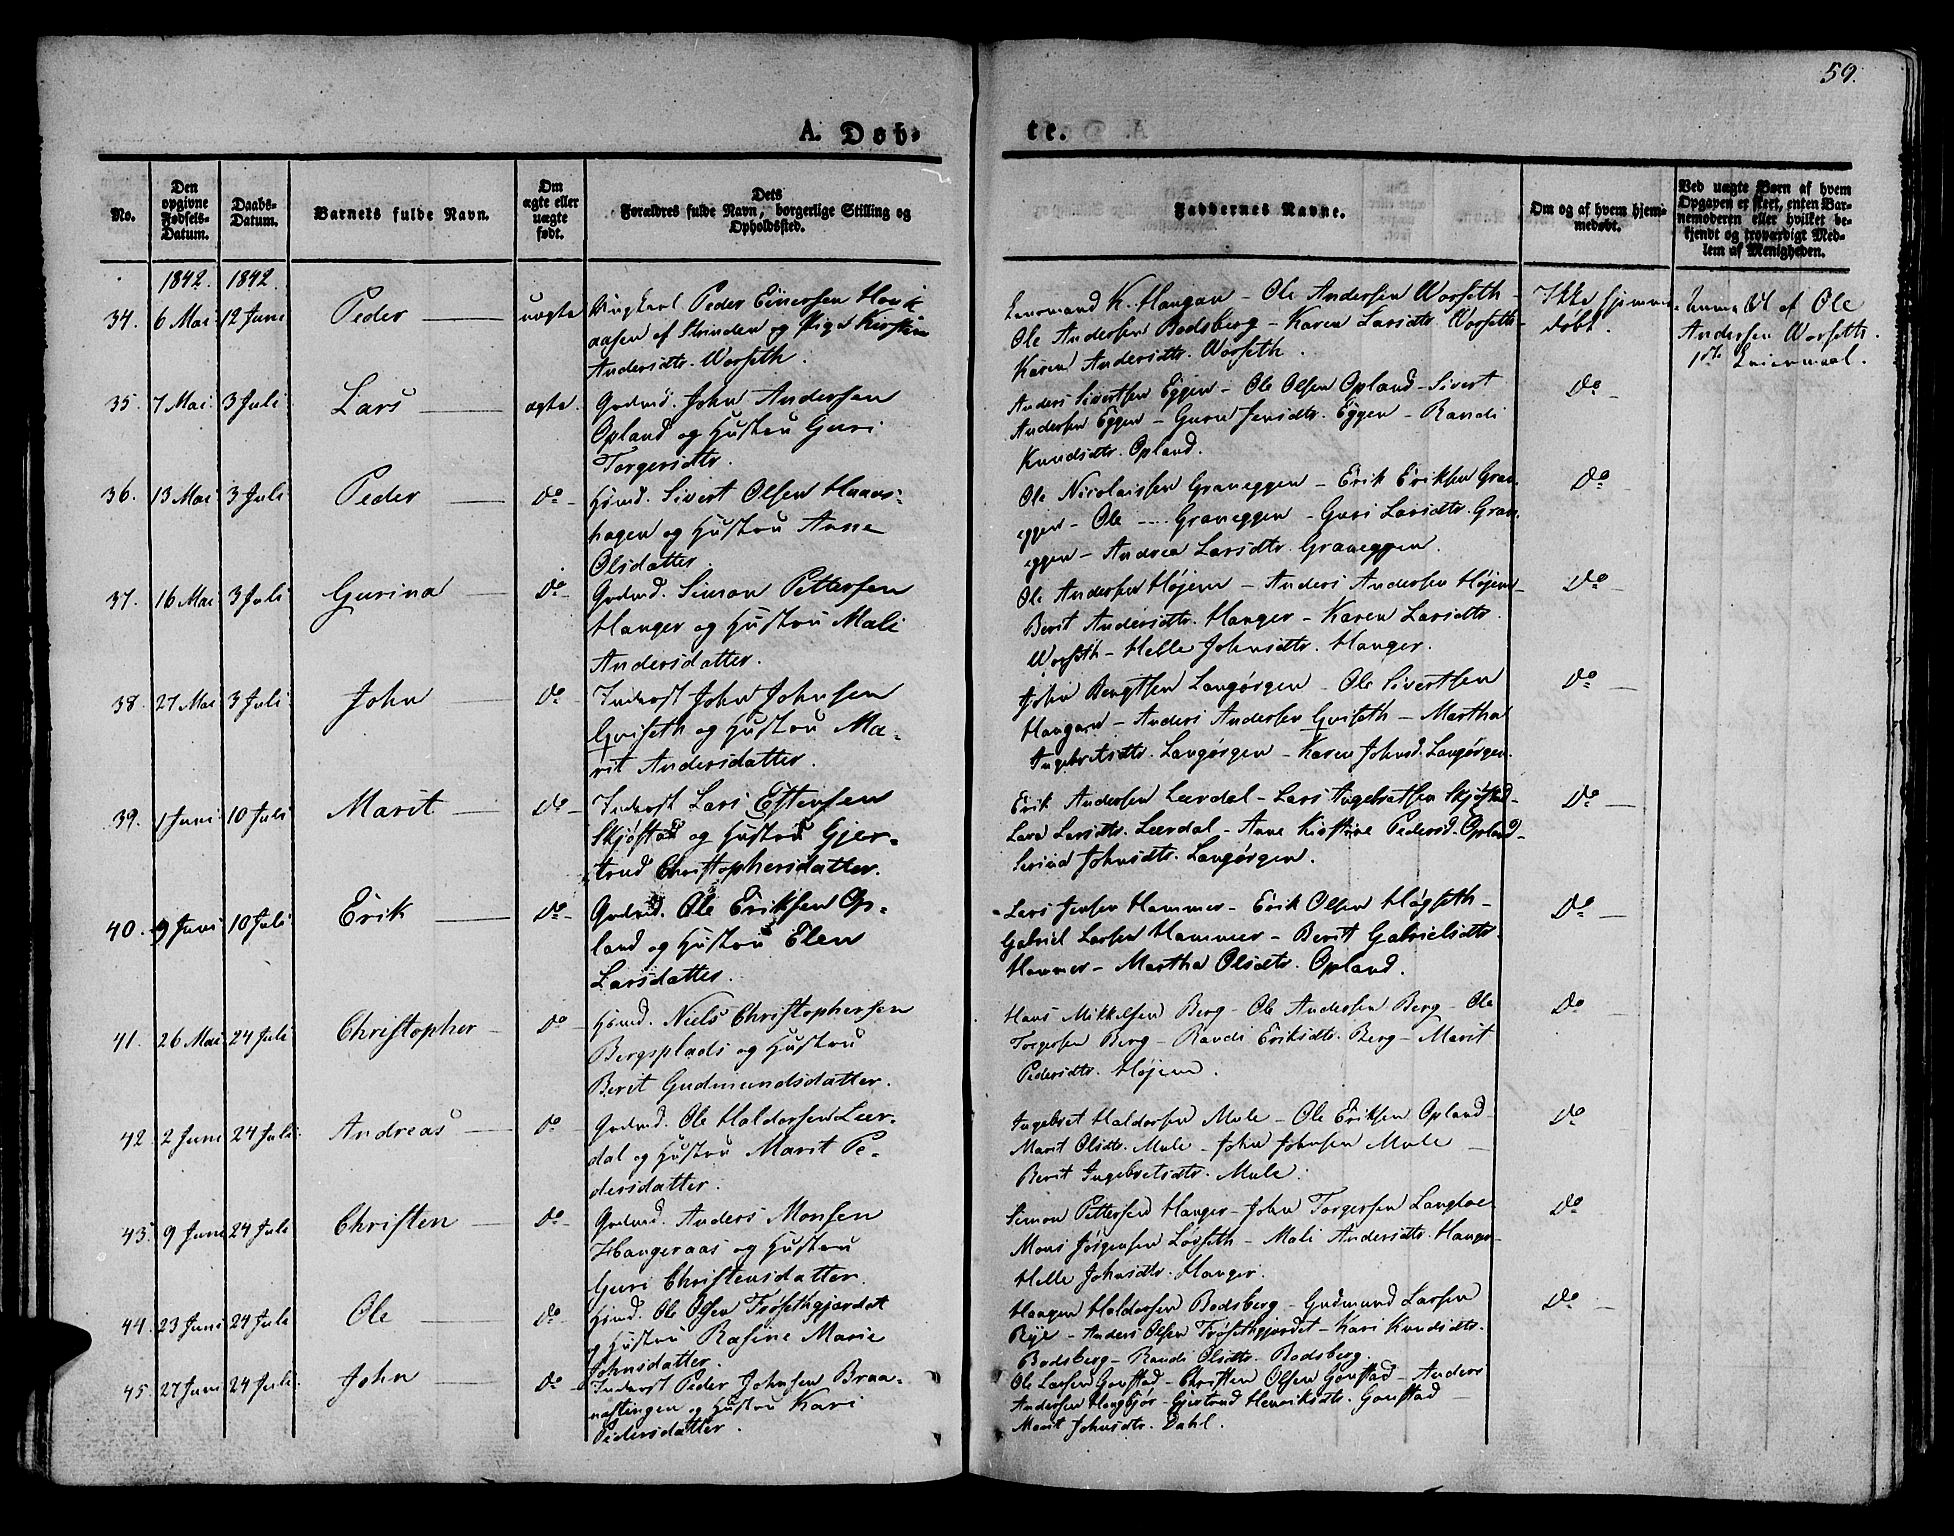 59.
A. Døb-
te.
No.
Den opgivne Fødsels-Datum.
Daabs-Datum.
Barnets fulde Navn.
Om ægte eller uægte født.
Dets Forældres fulde Navn, borgerlige Stilling og Opholdssted.
Faddernes Navne.
Om og af hvem hjem-medøbt.
Ved uægte Børn af hvem Opgaven er skeet, enten Bar-nemoderen eller hvilket be-kjendt og troværdigt Med-lem af Menigheden.
1842. 1842.
34. 6 Mai 12 Juni Peder uægte Ungkarl Peder Einersen Hovk
aasen af Strinden og Pige Kirstine
Andersdtr. Worseth.
Lensmand K. Hangan - Ole Andersen Worseth -
Ole Andersen Bodsberg - Karen Larsdtr. Worseth -
Karen Andersdtr. Worseth.
Ikke hjemme
døbt.
Anmeldt af Ole
Andersen Worseth.
1ste Leiermaal.
35. 7 Mai 3 Juli Lars ægte. Gaardmd. John Andersen
Opland og Hustru Guri
Torgersdtr.
Anders Sivertsen Eggen - Ole Olsen Opland - Sivert
Andersen Eggen - Guru Jensdtr. Eggen - Randi
Knudsdtr. Opland.
Do -
36. 13 Mai 3 Juli Peder Do - Huusmd. Sivert Olsen Haavs-
hagen og Hustru Anne
Olsdatter.
Ole Nicolaissen Graneggen - Erik Eriksen Gran-
eggen - Ole --- Graneggen - Guri Larsdtr. Gran-
eggen - Andrea Larsdtr. Graneggen.
Do -
37. 16 Mai 3 Juli Gurina Do - Gaardmd. Simon Pettersen
Hanger og Hustru Mali
Andersdatter.
Ole Andersen Højem - Anders Andersen Højem -
Berit Andersdtr. Hanger - Karen Larsdtr.
Worseth - Helle Johnsdtr. Hanger.
Do -
38. 27 Mai 3 Juli John Do - Inderst John Johnsen
Qviseth og Hustru Ma-
rit Andersdatter.
John Bengtsen Langørgen - Ole Sivertsen
Hangan - Anders Andersen Qviseth - Martha
Ingebretsdtr. Langørgen - Karen Johnsd. Langørgen.
Do -
39. 1 Juni 10 Juli Marit Do - Inderst Lars Estensen
Skjøstad og Hustru Gjer-
trud Christophersdatter.
Erik Andersen Leerdal - Lars Ingebretsen Skjøstad -
Lava Larsdtr. Leerdal - Ane Kirstine Pedersd. Opland -
Sirind Johnsdtr. Langørgen.
Do -
40. 9 Juni 10 Juli Erik Do - Gaardmd. Ole Eriksen Op-
land og Hustru Elen
Larsdatter.
Lars Jensen Hammer - Erik Olsen Høgseth -
Gabriel Larsen Hammer - Berit Gabrielsdtr.
Hammer - Martha Olsdtr. Opland.
Do -
41. 26 Mai 24 Juli Christopher Do - Huusmd. Niels Christophersen
Bergsplads og Hustru
Berit Gudmundsdatter.
Hans Mikkelsen Berg - Ole Andersen Berg - Ole
Torgersen Berg - Randi Eriksdtr. Berg - Marit
Pedersdtr. Højem.
Do -
42. 2 Juni 24 Juli Andreas Do - Gaardmd. Ole Haldorsen Leer-
dal og Hustru Marit Pe-
dersdatter.
Ingebret Haldorsen Mule - Ole Eriksen Opland -
Marit Olsdtr. Mule - John Johnsen Mule -
Berit Ingebretsdtr. Mule.
Do
43. 9 Juni 24 Juli Christen Do - Gaardmd. Anders Monsen
Hangeraas og Hustru
Guri Christensdatter.
Simon Pettersen Hanger - John Torgersen Langloe
Mons Jørgensen Løvseth - Mali Andersdtr. Hanger
Helle Johnsdtr. Hanger.
Do
44. 23 Juni 24 Juli Ole Do - Huusmd. Ole Olsen Trøsethgjardet
og Hustru Rasine Marie
Johnsdatter.
Haagen Haldorsen Bodsberg - Gudmund Larsen
Rye - Anders Olsen Trøsethgjerdet - Kari Knudsdtr.
Bodsberg - Randi Olsdtr. Bodsberg.
Do -
45. 27 Juni 24 Juli John Do - Inderst Peder Johnsen Braa-
nastingen og Hustru Kari
Pedersdatter.
Ole Larsen Goustad - Christen Olsen Goustad - Anders
Andersen Haugbjør - Gjertrud Henriksdtr. Goustad -
Marit Johnsdtr. Dahl.